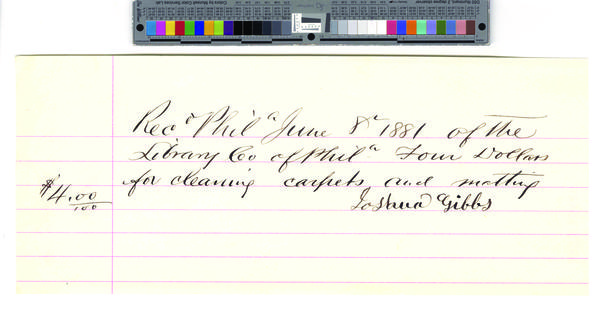 Rec.d Phil.a June 8th 1881 of the
Library Co of Phil.a Four Dollars
for cleaning carpets and matting
$4.00/100
Joshua Gibbs